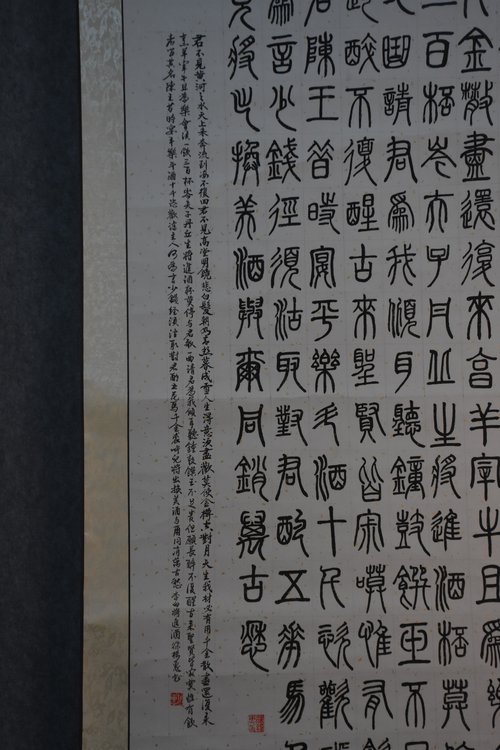 金散盡還復來烹羊宰牛且
三百杯岑夫子丹丘生將進酒杯莫
曲請君為我傾耳聽鐘鼓饌玉不
醉不復醒古來聖賢皆寂寞惟有
名陳王昔時宴平樂斗酒十千恣歡
為言少錢徑須沽取對君酌五花馬
兒將出換美酒與爾同銷萬古愁
君不見黃河之水天上來奔流到海不復回君不見高堂明鏡悲白髮朝如青絲暮成雪人生得意須盡歡莫使金樽空對月天生我材必有用千金散盡還復來
烹羊宰牛且為樂會須一飲三百杯岑夫子丹丘生將進酒杯莫停與君歌一曲請君為我傾耳聽鐘鼓饌玉不足貴但願長醉不復醒古來聖賢皆寂寞惟有飲
者留其名陳王昔時宴平樂斗酒十千恣歡謔主人何為言少錢徑須沽取對君酌五花馬千金裘呼兒將出換美酒與爾同消萬古愁李白將進酒